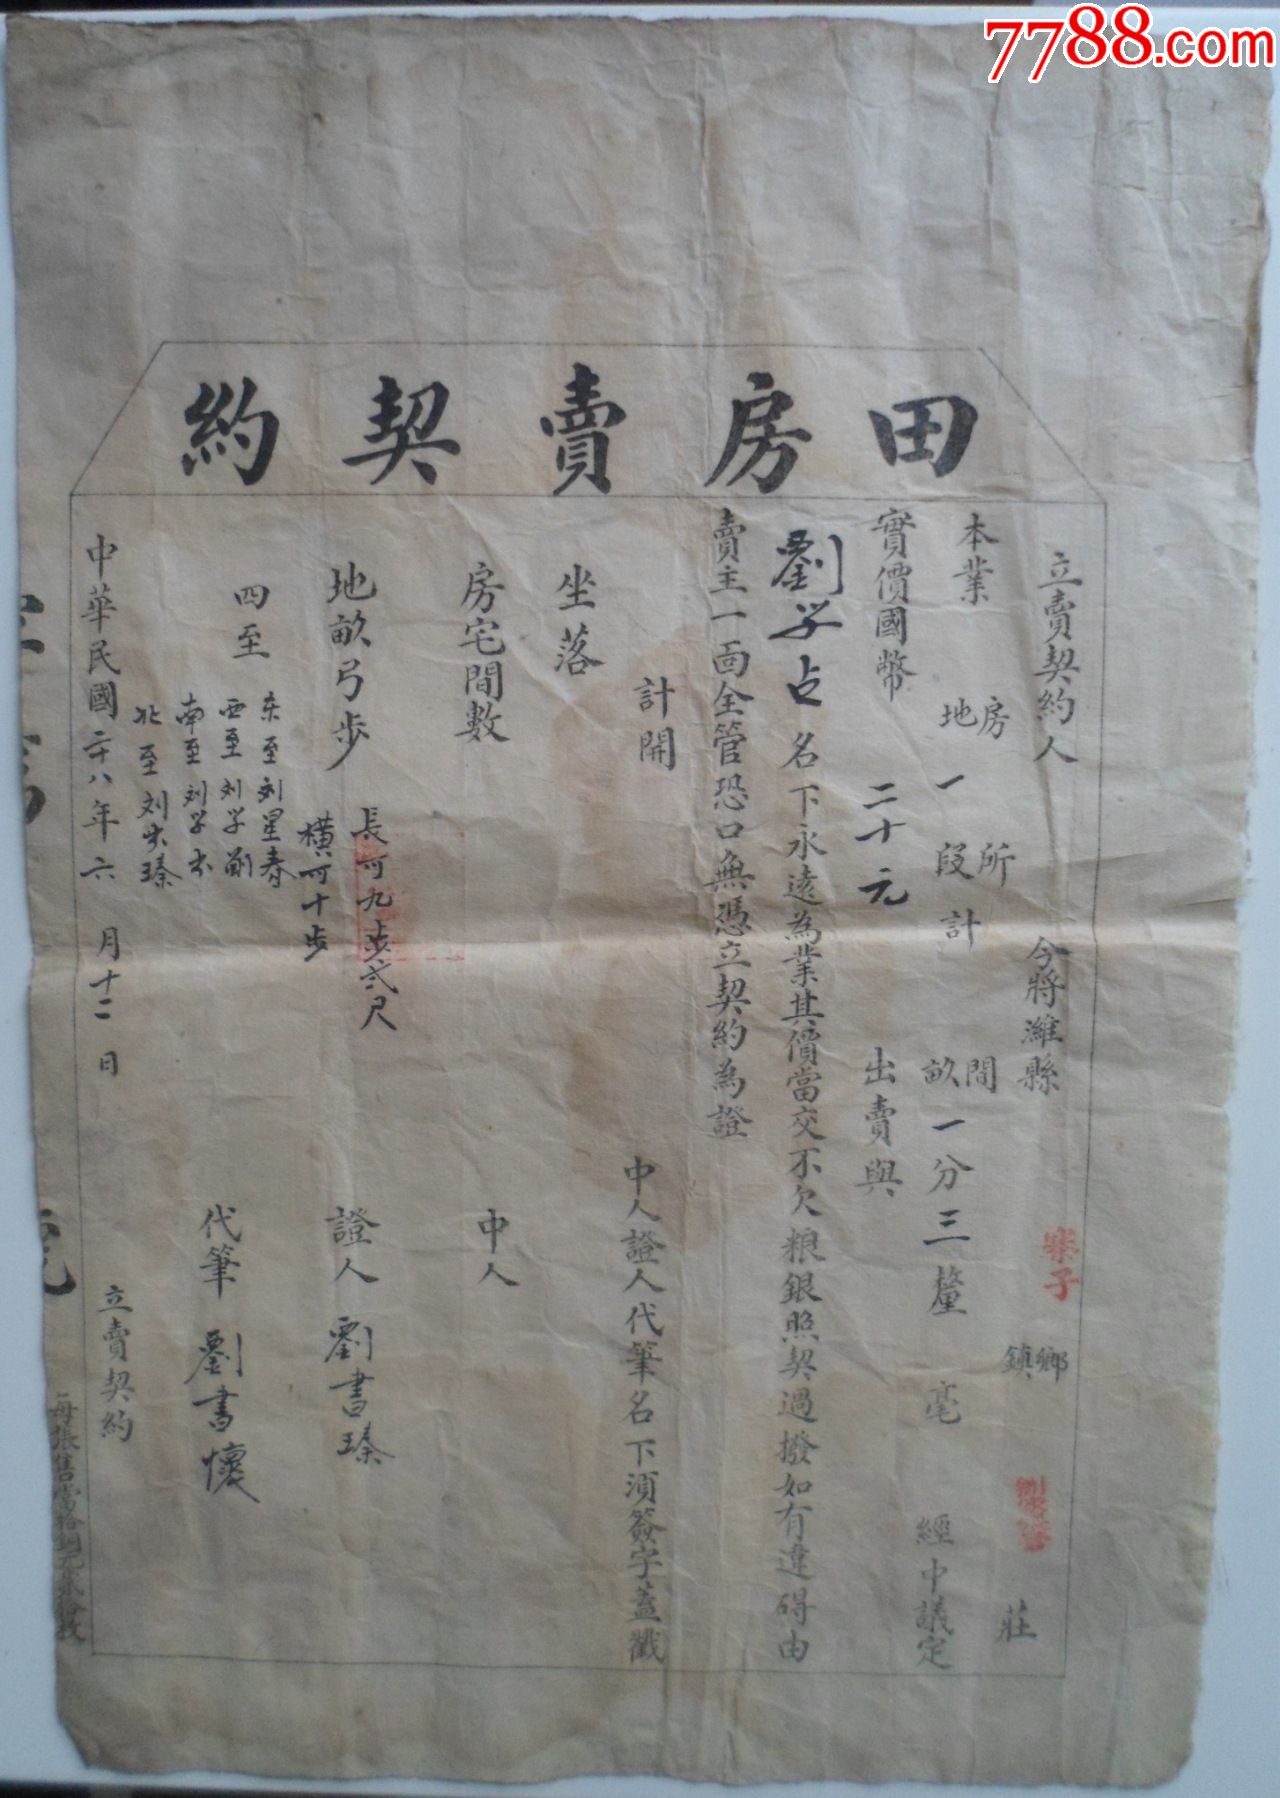 7788.com
田房賣契約
立賣契約人 今將濰縣 寨子 鄉鎮 莊
本業 房地 一 所段 計 間畝 一分三釐 毫 經中議定
實價國幣 二十元 出賣與
劉学占 名下永遠為業其價當交不欠粮銀照契過撥如有違碍由
賣主一面全管恐口無憑立契約為證
計開
中人證人代筆名下須簽字蓋戳
坐落
房宅間數
中人
地畝弓步 長可九步弍尺
橫可十步
證人 劉書瑧
四至 东至刘星春
西至刘学
南至刘学
北至刘 瑧
代筆 劉書懷
中華民國二十八年六月十二日 立賣契約
每張售當拾銅元貳拾枚